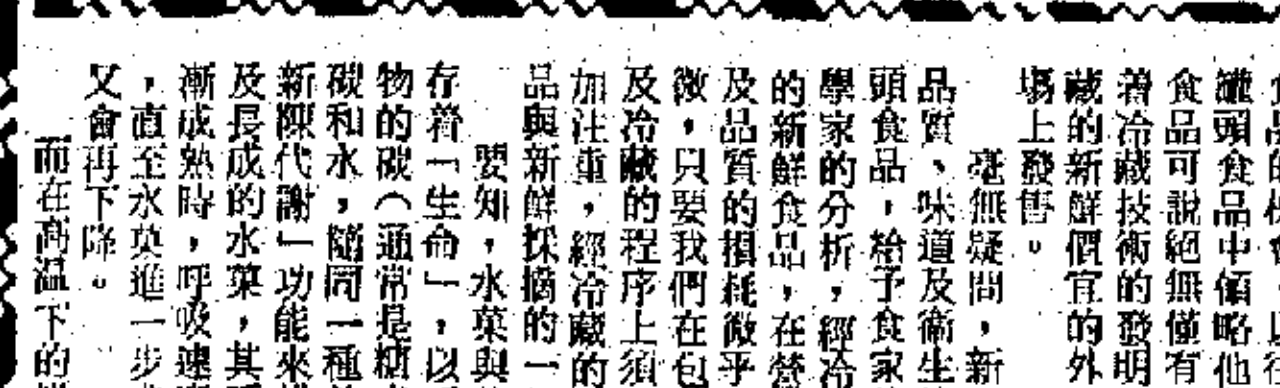 罐頭食品中領略他
食品可說絕無僅有
着冷藏技術的發明
藏的新鮮價宜的外
塲上發售。
毫無疑問，新
品質、味道及衞生
頭食品，給予食家
學家的分析，經冷
的新鮮食品，在營
及品質的損耗微乎
微，只要我們在包
及冷藏的程序上須
加注重，經冷藏的
品與新鮮採摘的一
要知，水菓與
存着「生命」，以
物的碳（通常是糖
碳和水，隨同一種
新陳代謝」功能來
及長成的水菓，其
漸成熟時，呼吸速
，直至水菓進一步
又會再下降。
而在高溫下的